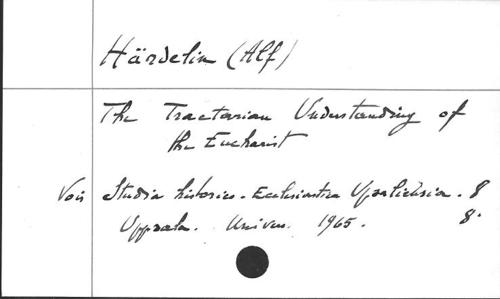 Härdelin (Alf)
The Tractarian Understanding of
the Eucharist
Voir Studia historico-Ecclesiastica Upsaliensia. 8
Uppsala. Univers. 1965. 8°